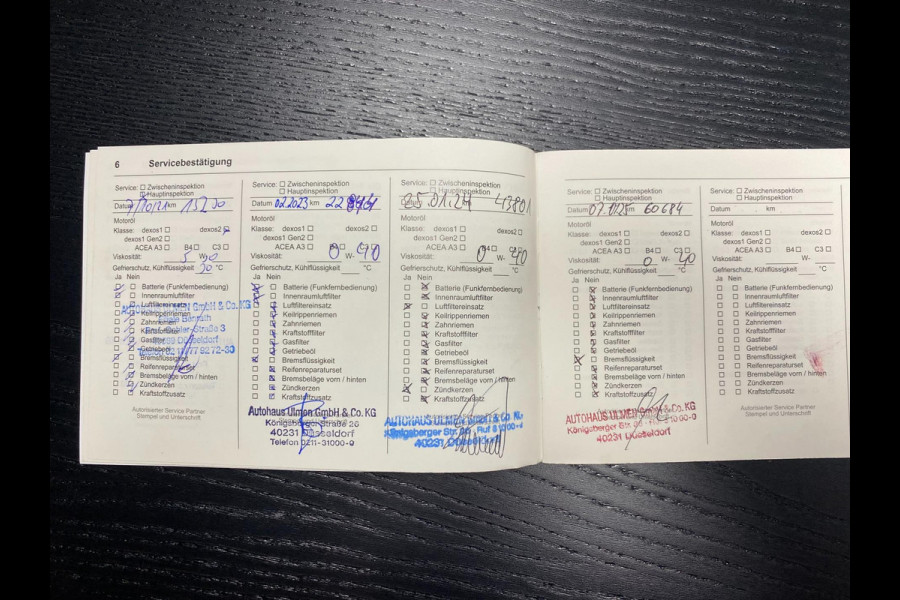 6 Servicebestätigung
Service: Zwischeninspektion
Hauptinspektion
Datum 7/10/21 km 15230
Motoröl
Klasse: dexos1 dexos2
dexos1 Gen2
ACEA A3 B4 C3
Viskosität: 5 W- 30
Gefrierschutz, Kühlflüssigkeit 30 °C
Ja Nein
Batterie (Funkfernbedienung)
Innenraumluftfilter
Luftfiltereinsatz
Keilrippenriemen
Zahnriemen
Kraftstofffilter
Gasfilter
Getriebeöl
Bremsflüssigkeit
Reifenreparaturset
Bremsbeläge vorn / hinten
Zündkerzen
Kraftstoffzusatz
GmbH & Co. KG
Straße 3
Düsseldorf
Autorisierter Service Partner
Stempel und Unterschrift
Service: Zwischeninspektion
Hauptinspektion
Datum 02.2023 km
Motoröl
Klasse: dexos1 dexos2
dexos1 Gen2
ACEA A3 B4 C3
Viskosität: 0 W- 40
Gefrierschutz, Kühlflüssigkeit °C
Ja Nein
Batterie (Funkfernbedienung)
Innenraumluftfilter
Luftfiltereinsatz
Keilrippenriemen
Zahnriemen
Kraftstofffilter
Gasfilter
Getriebeöl
Bremsflüssigkeit
Reifenreparaturset
Bremsbeläge vorn / hinten
Zündkerzen
Kraftstoffzusatz
Autohaus Ulmen GmbH & Co. KG
Königsberger Straße 26
40231 Düsseldorf
Telefon 0211-31000-0
Service: Zwischeninspektion
Hauptinspektion
Datum 25.01.24 43801
Motoröl
Klasse: dexos1 dexos2
dexos1 Gen2
ACEA A3 B4 C3
Viskosität: 0 W- 40
Gefrierschutz, Kühlflüssigkeit °C
Ja Nein
Batterie (Funkfernbedienung)
Innenraumluftfilter
Luftfiltereinsatz
Keilrippenriemen
Zahnriemen
Kraftstofffilter
Gasfilter
Getriebeöl
Bremsflüssigkeit
Reifenreparaturset
Bremsbeläge vorn / hinten
Zündkerzen
Kraftstoffzusatz
AUTOHAUS ULMEN GmbH & Co. KG
Königsberger Str. 26 Ruf
40231 Düsseldorf
Service: Zwischeninspektion
Hauptinspektion
Datum km 60684
Motoröl
Klasse: dexos1 dexos2
dexos1 Gen2
ACEA A3 B4 C3
Viskosität: 0 W- 40
Gefrierschutz, Kühlflüssigkeit °C
Ja Nein
Batterie (Funkfernbedienung)
Innenraumluftfilter
Luftfiltereinsatz
Keilrippenriemen
Zahnriemen
Kraftstofffilter
Gasfilter
Getriebeöl
Bremsflüssigkeit
Reifenreparaturset
Bremsbeläge vorn / hinten
Zündkerzen
Kraftstoffzusatz
AUTOHAUS ULMEN GmbH & Co. KG
Königsberger Str. 26
40231 Düsseldorf
Service: Zwischeninspektion
Hauptinspektion
Datum km
Motoröl
Klasse: dexos1 dexos2
dexos1 Gen2
ACEA A3 B4 C3
Viskosität: W-
Gefrierschutz, Kühlflüssigkeit °C
Ja Nein
Batterie (Funkfernbedienung)
Innenraumluftfilter
Luftfiltereinsatz
Keilrippenriemen
Zahnriemen
Kraftstofffilter
Gasfilter
Getriebeöl
Bremsflüssigkeit
Reifenreparaturset
Bremsbeläge vorn / hinten
Zündkerzen
Kraftstoffzusatz
Autorisierter Service Partner
Stempel und Unterschrift